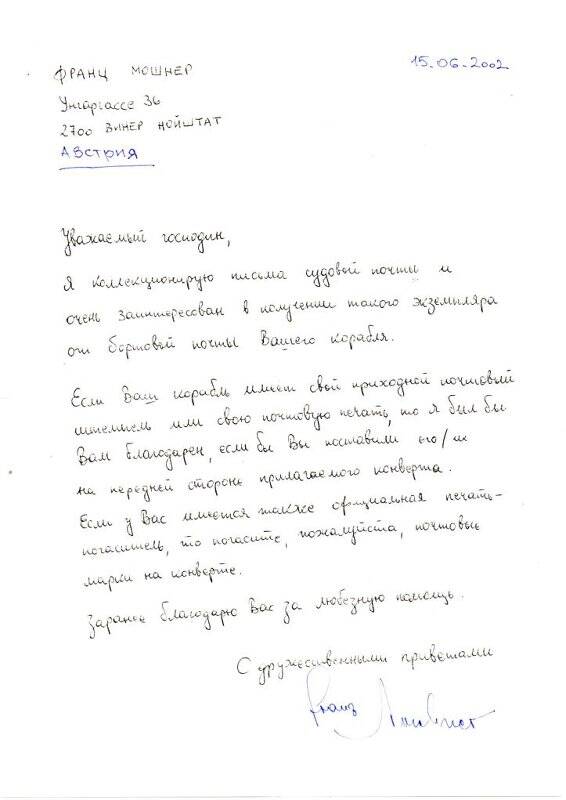 ФРАНЦ МОШНЕР
15.06.2002
Унгаргассе 36
2700 ВИНЕР НОЙШТАТ
АВСТРИЯ
Уважаемый господин,
Я коллекционирую письма судовой почты и
очень заинтересован в получении такого экземпляра
от бортовой почты Вашего корабля.
Если Ваш корабль имеет свой приходной почтовый
штемпель или свою почтовую печать, то я был бы
Вам благодарен, если бы Вы поставили его/их
на передней стороне прилагаемого конверта.
Если у Вас имеется также официальная печать-
погаситель, то погасите, пожалуйста, почтовые
марки на конверте.
Заранее благодарю Вас за любезную помощь.
С дружественными приветами
Franz